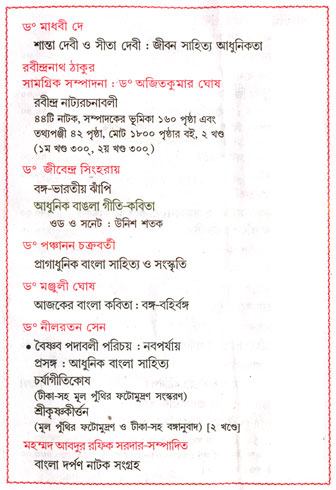 ড° মাধবী দে
শান্তা দেবী ও সীতা দেবী : জীবন সাহিত্য আধুনিকতা
রবীন্দ্রনাথ ঠাকুর
সামগ্রিক সম্পাদনা : ড° অজিতকুমার ঘোষ
রবীন্দ্র নাট্যরচনাবলী
৪৪টি নাটক, সম্পাদকের ভূমিকা ১৬০ পৃষ্ঠা এবং
তথ্যপঞ্জী ৪২ পৃষ্ঠা, মোট ১৮০০ পৃষ্ঠার বই, ২ খণ্ড
(১ম খণ্ড ৩০০্, ২য় খণ্ড ৩০০্)
ড° জীবেন্দ্র সিংহরায়
বঙ্গ-ভারতীয় ঝাঁপি
আধুনিক বাঙলা গীতি-কবিতা
ওড ও সনেট : উনিশ শতক
ড° পঞ্চানন চক্রবর্তী
প্রাগাধুনিক বাংলা সাহিত্য ও সংস্কৃতি
ড° মঞ্জুলী ঘোষ
আজকের বাংলা কবিতা : বঙ্গ-বহির্বঙ্গ
ড° নীলরতন সেন
• বৈষ্ণব পদাবলী পরিচয় : নবপর্যায়
প্রসঙ্গ : আধুনিক বাংলা সাহিত্য
চর্যাগীতিকোষ
(টীকা-সহ মূল পুঁথির ফটোমুদ্রণ সংস্করণ)
শ্রীকৃষ্ণকীর্ত্তন
(মূল পুঁথির ফটোমুদ্রণ ও টীকা-সহ বঙ্গানুবাদ) [২ খণ্ডে]
মহম্মদ আবদুর রফিক সরদার-সম্পাদিত
বাংলা দর্পণ নাটক সংগ্রহ